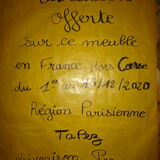 offerte
sur ce meuble
en France Hors Corse
du 1er au 15/12/2020
Région Parisienne
Tapez